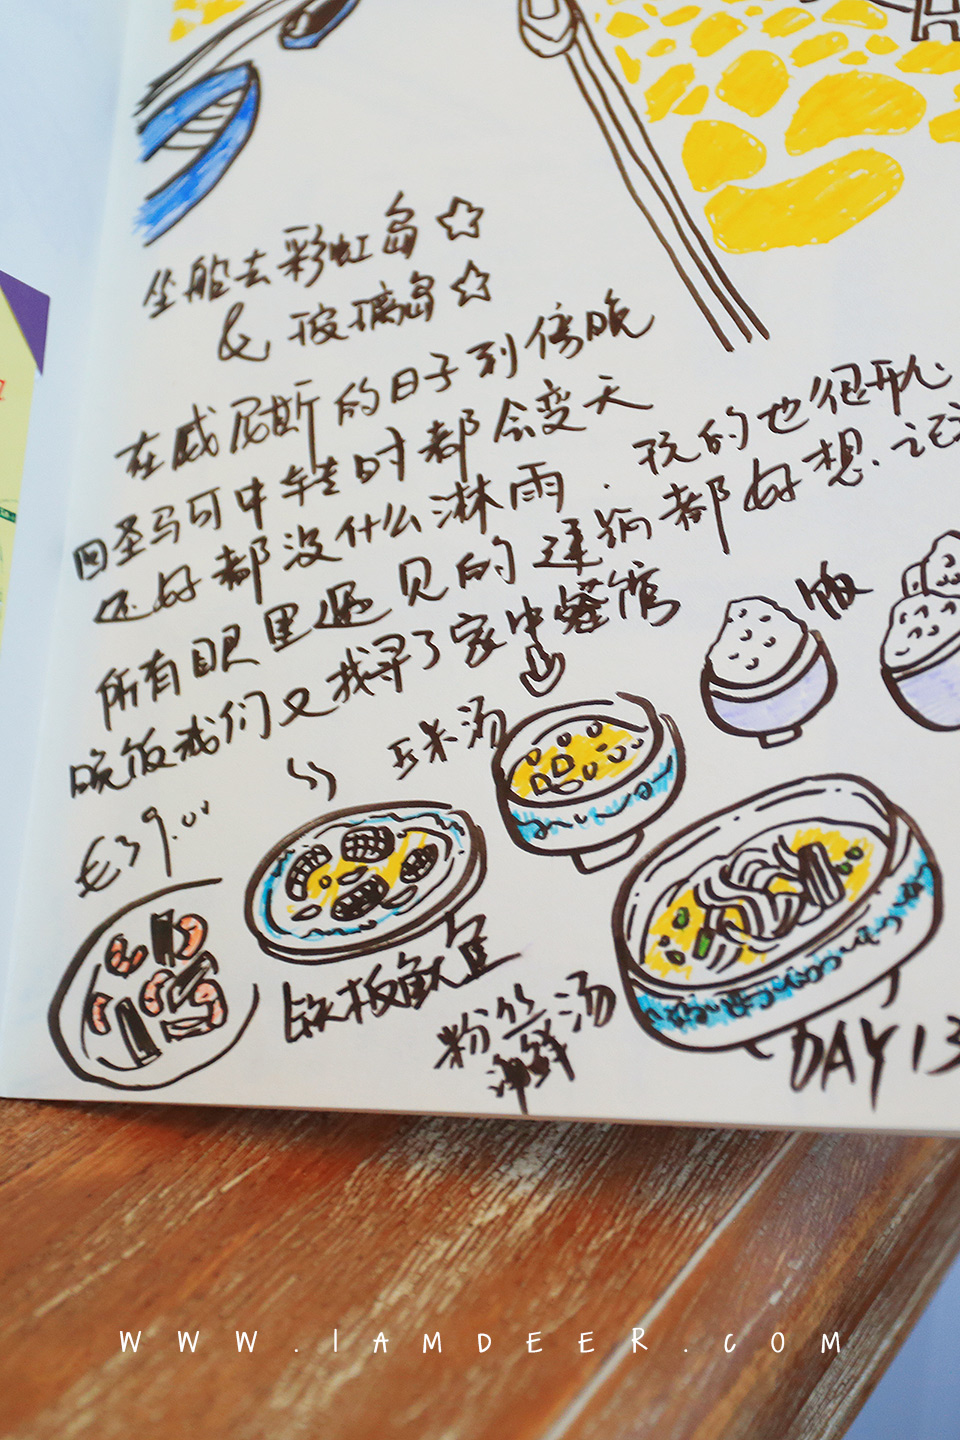 坐船去彩虹岛☆
& 玻璃岛☆
在威尼斯的日子到傍晚
圣马可中转时都会变天
还好都没什么淋雨.玩的也很开心
所有眼里遇见的建筑都好想.记
晚饭我们又找寻了家中餐馆
€39.00
玉米汤
饭
铁板鱿鱼
粉丝汤
海鲜
DAY 13
WWW.IAMDEER.COM